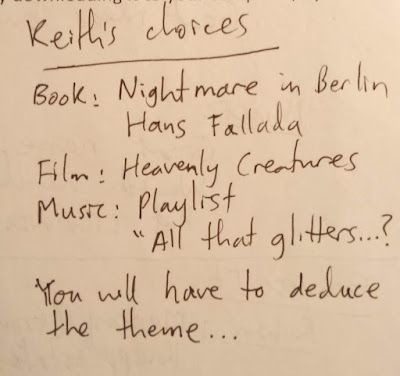 Keith's choices
Book: Nightmare in Berlin
Hans Fallada
Film: Heavenly Creatures
Music: Playlist
"All that glitters...?
You will have to deduce
the theme...